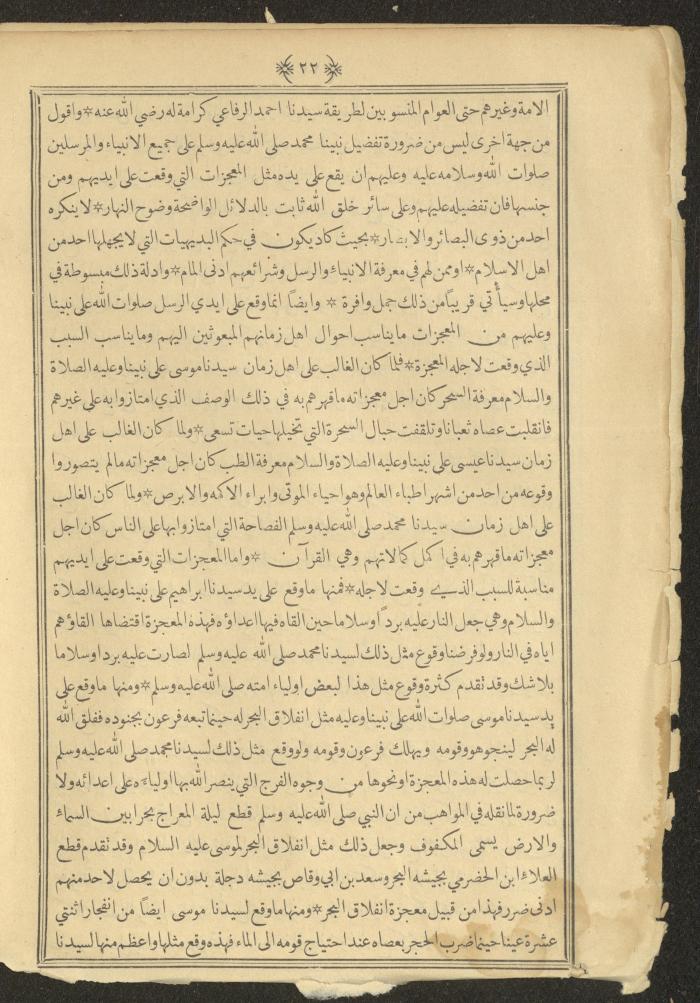 ﴿ ٢٢ ﴾
الامة وغيرهم حتى العوام المنسوبين لطريقة سيدنا احمد الرفاعي كرامة له رضي الله عنه * واقول
من جهة اخرى ليس من ضرورة تفضيل نبينا محمد صلى الله عليه وسلم على جميع الانبياء والمرسلين
صلوات الله وسلامه عليه وعليهم ان يقع على يده مثل المعجزات التي وقعت على ايديهم ومن
جنسها فان تفضيله عليهم وعلى سائر خلق الله ثابت بالدلائل الواضحة وضوح النهار * لا ينكره
احد من ذوى البصائر والابصار * بحيث كاد يكون في حكم البديهيات التي لا يجهلها احد من
اهل الاسلام * او ممن لهم في معرفة الانبياء والرسل وشرائعهم ادنى المام * وادلة ذلك مبسوطة في
محلها وسيأتي قريباً من ذلك جمل وافرة * وايضاً انما وقع على ايدي الرسل صلوات الله على نبينا
وعليهم من المعجزات ما يناسب احوال اهل زمانهم المبعوثين اليهم وما يناسب السبب
الذي وقعت لاجله المعجزة * فلما كان الغالب على اهل زمان سيدنا موسى على نبينا وعليه الصلاة
والسلام معرفة السحر كان اجل معجزاته ما قهرهم به في ذلك الوصف الذي امتازوا به على غيرهم
فانقلبت عصاه ثعبانا وتلقفت حبال السحرة التي تخيلها حيات تسعى * ولما كان الغالب على اهل
زمان سيدنا عيسى على نبينا وعليه الصلاة والسلام معرفة الطب كان اجل معجزاته ما لم يتصوروا
وقوعه من احد من اشهر اطباء العالم وهو احياء الموتى وابراء الاكمه والابرص * ولما كان الغالب
على اهل زمان سيدنا محمد صلى الله عليه وسلم الفصاحة التي امتازوا بها على الناس كان اجل
معجزاته ما قهرهم به في اكمل كمالاتهم وهي القرآن * واما المعجزات التي وقعت على ايديهم
مناسبة للسبب الذي وقعت لاجله * فمنها ما وقع على يد سيدنا ابراهيم على نبينا وعليه الصلاة
والسلام وهي جعل النار عليه برداً وسلاما حين القاه فيها اعداؤه فهذه المعجزة اقتضاها القاؤهم
اياه في النار ولو فرضنا وقوع مثل ذلك لسيدنا محمد صلى الله عليه وسلم لصارت عليه بردا وسلاما
بلا شك وقد تقدم كثرة وقوع مثل هذا لبعض اولياء امته صلى الله عليه وسلم * ومنها ما وقع على
يد سيدنا موسى صلوات الله على نبينا وعليه مثل انفلاق البحر له حينما تبعه فرعون بجنوده ففلق الله
له البحر لينجو هو وقومه ويهلك فرعون وقومه ولو وقع مثل ذلك لسيدنا محمد صلى الله عليه وسلم
لربما حصلت له هذه المعجزة او نحوها من وجوه الفرج التي ينصر الله بها اولياءه على اعدائه ولا
ضرورة لما نقله في المواهب من ان النبي صلى الله عليه وسلم قطع ليلة المعراج بحرا بين السماء
والارض يسمى المكفوف وجعل ذلك مثل انفلاق البحر لموسى عليه السلام وقد تقدم قطع
العلاء ابن الحضرمي بجيشه البحر وسعد بن ابي وقاص بجيشه دجلة بدون ان يحصل لاحد منهم
ادنى ضرر فهذا من قبيل معجزة انفلاق البحر * ومنها ما وقع لسيدنا موسى ايضاً من انفجار اثنتي
عشرة عينا حينما ضرب الحجر بعصاه عند احتياج قومه الى الماء فهذه وقع مثلها واعظم منها لسيدنا